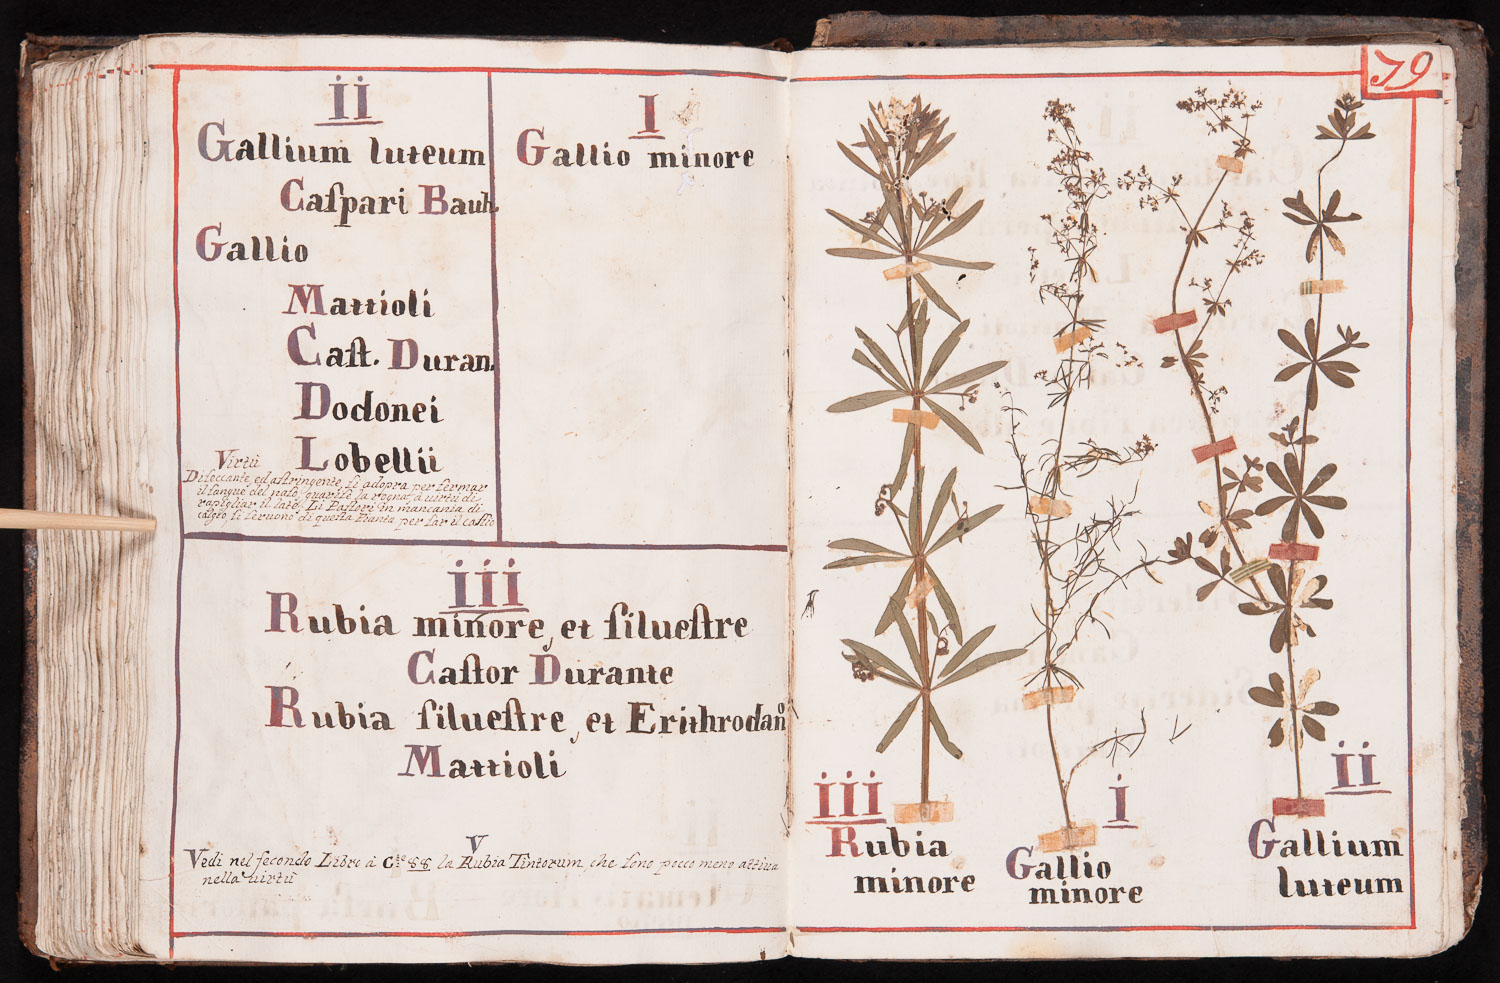 ii
Gallium luteum
Caſpari Bauh.
Gallio
Mattioli
Caſt. Duran.
Dodonei
Lobellii
Virtù
Diſeccante, ed aſtringente, ſi adopra per fermar
il ſangue del naſo, guariſce la rogna, à virtù di
rapigliar il latte. Li Paſtori in mancanza di
caglio ſi ſeruono di queſta Pianta per far il caſcio
I
Gallio minore
iii
Rubia minore, et ſilueſtre
Caſtor Durante
Rubia ſilueſtre, et Erithrodanº
Mattioli
V
Vedi nel ſecondo Libro à Cte 88 la Rubia Tintorum, che ſono pocco meno attiva
nella virtù
79
iii
Rubia
minore
i
Gallio
minore
ii
Gallium
luteum